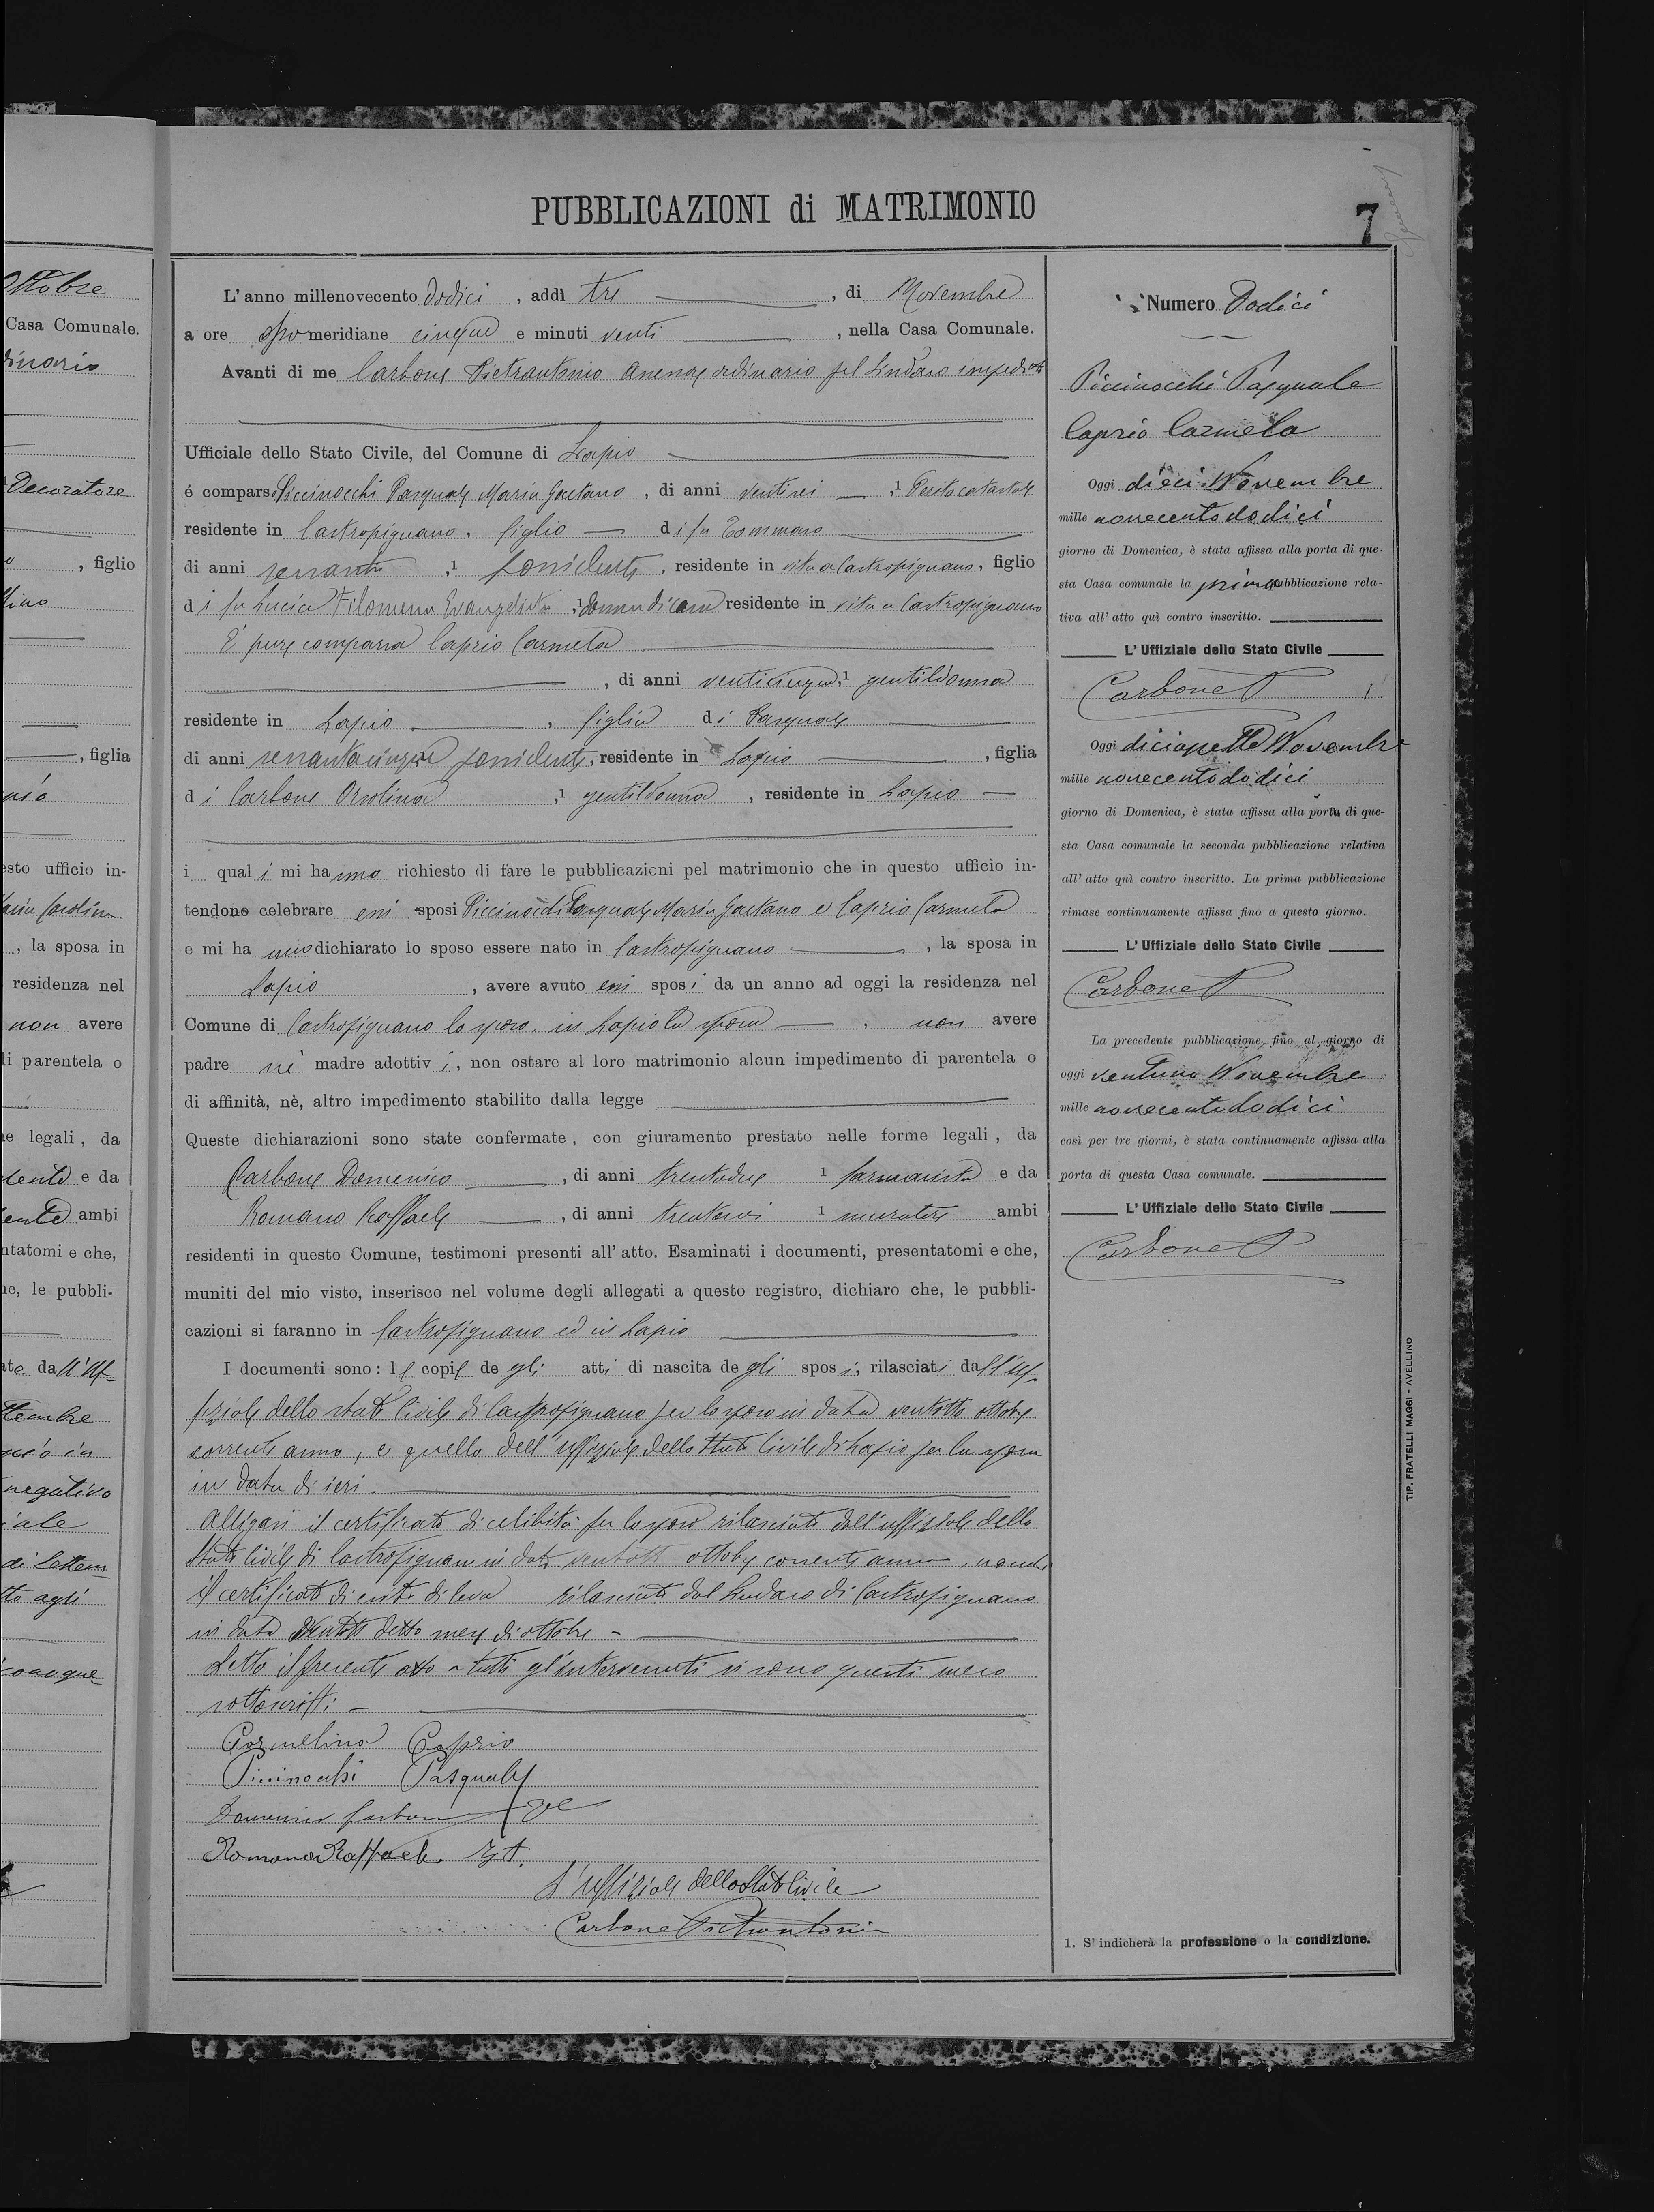 PUBBLICAZIONI di MATRIMONIO
7
L'anno millenovecento dodici, addì tre, di Novembre
a ore pomeridiane cinque e minuti venti, nella Casa Comunale.
Avanti di me Carbone Pietrantonio Assessore ordinario pel Sindaco impedito
Ufficiale dello Stato Civile, del Comune di Lapio
é comparso Piccinocchi Pasquale Maria Gaetano, di anni ventisei, 1 Perito catastale
residente in Castropignano, figlio di fu Tommaso
di anni sessanta, 1 possidente, residente in vita a Castropignano, figlio
di fu Lucia Filomena Evangelista, 1 donna di casa residente in vita a Castropignano
È pure comparsa Caprio Carmela
, di anni venticinque, 1 gentildonna
residente in Lapio, figlia di Pasquale
di anni sessantacinque possidente, residente in Lapio, figlia
di Carbone Orsolina, 1 gentildonna, residente in Lapio
i quali mi hanno richiesto di fare le pubblicazioni pel matrimonio che in questo ufficio in-
tendono celebrare essi sposi Piccinocchi Pasquale Maria Gaetano e Caprio Carmela
e mi hanno dichiarato lo sposo essere nato in Castropignano, la sposa in
Lapio, avere avuto essi sposi da un anno ad oggi la residenza nel
Comune di Castropignano lo sposo, in Lapio la sposa, non avere
padre nè madre adottivi, non ostare al loro matrimonio alcun impedimento di parentela o
di affinità, nè, altro impedimento stabilito dalla legge
Queste dichiarazioni sono state confermate, con giuramento prestato nelle forme legali, da
Carbone Domenico, di anni trentadue 1 farmacista e da
Romano Raffaele, di anni trentasei 1 muratore ambi
residenti in questo Comune, testimoni presenti all'atto. Esaminati i documenti, presentatomi e che,
muniti del mio visto, inserisco nel volume degli allegati a questo registro, dichiaro che, le pubbli-
cazioni si faranno in Castropignano ed in Lapio
I documenti sono: le copie degli atti di nascita degli sposi, rilasciati dall'Uf-
fiziale dello stato Civile di Castropignano per lo sposo in data ventotto ottobre
corrente anno, e quello dell'uffiziale dello Stato Civile di Lapio per la sposa
in data di ieri.
Alligasi il certificato di celibità per lo sposo rilasciato dall'uffiziale dello
Stato Civile di Castropignano in data ventotto ottobre corrente anno, nonché
il certificato di esito di leva rilasciato dal Sindaco di Castropignano
in data ventotto detto mese di ottobre -
Letto il presente atto a tutti gl'intervenuti si sono questi meco
sottoscritti -
Carmelina Caprio
Piccinocchi Pasquale
Domenico Carbone
Romano Raffaele
L'uffiziale dello Stato Civile
Carbone Pietrantonio
Numero Dodici
Piccinocchi Pasquale
Caprio Carmela
Oggi dieci Novembre
mille novecentododici
giorno di Domenica, è stata affissa alla porta di que-
sta Casa comunale la prima pubblicazione rela-
tiva all'atto quì contro inscritto.
L'Uffiziale dello Stato Civile
Carbone P
Oggi diciassette Novembre
mille novecentododici
giorno di Domenica, è stata affissa alla porta di que-
sta Casa comunale la seconda pubblicazione relativa
all'atto quì contro inscritto. La prima pubblicazione
rimase continuamente affissa fino a questo giorno.
L'Uffiziale dello Stato Civile
Carbone P
La precedente pubblicazione, fino al giorno di
oggi ventuno Novembre
mille novecentododici
così per tre giorni, è stata continuamente affissa alla
porta di questa Casa comunale.
L'Uffiziale dello Stato Civile
Carbone P
1. S'indicherà la professione o la condizione.
TIP. FRATELLI MAGGI - AVELLINO
Ottobre
Casa Comunale.
Decoratore
, figlio
, figlia
esto ufficio in-
, la sposa in
residenza nel
non avere
di parentela o
e legali, da
e da
ambi
ntatomi e che,
ne, le pubbli-
ate dall'Uf-
negativo
di Settem-
tto agli